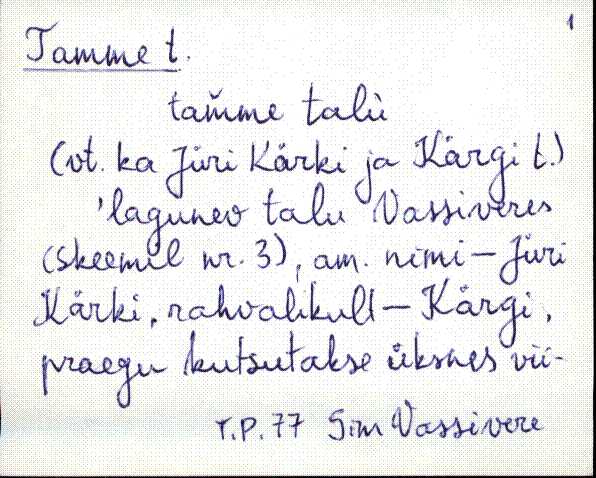 1
Tamme t.
tam̆me talù
(vt. ka Jüri Kärki ja Kärgi t.)
'lagunev talu Vassiveres
(skeemil nr. 3), am. nimi – Jüri
Kärki, rahvalikult – Kärgi,
praegu kutsutakse üksnes vii-
T.P. 77 Sim Vassivere